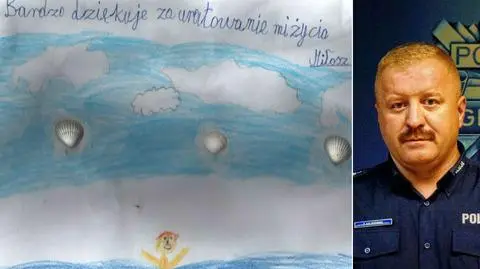 Bardzo dziękuje za uratowanie mi życia
Miłosz
PO
G
POL